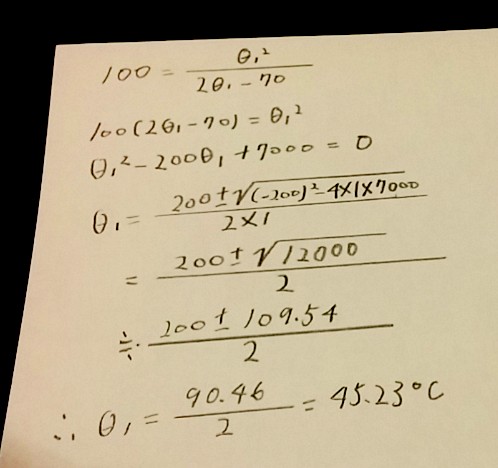 100 = θ₁² / (2θ₁ - 70)
100(2θ₁ - 70) = θ₁²
θ₁² - 200θ₁ + 7000 = 0
θ₁ = (200 ± √((-200)² - 4×1×7000)) / (2×1)
= (200 ± √12000) / 2
≒ (200 ± 109.54) / 2
∴ θ₁ = 90.46 / 2 = 45.23°C